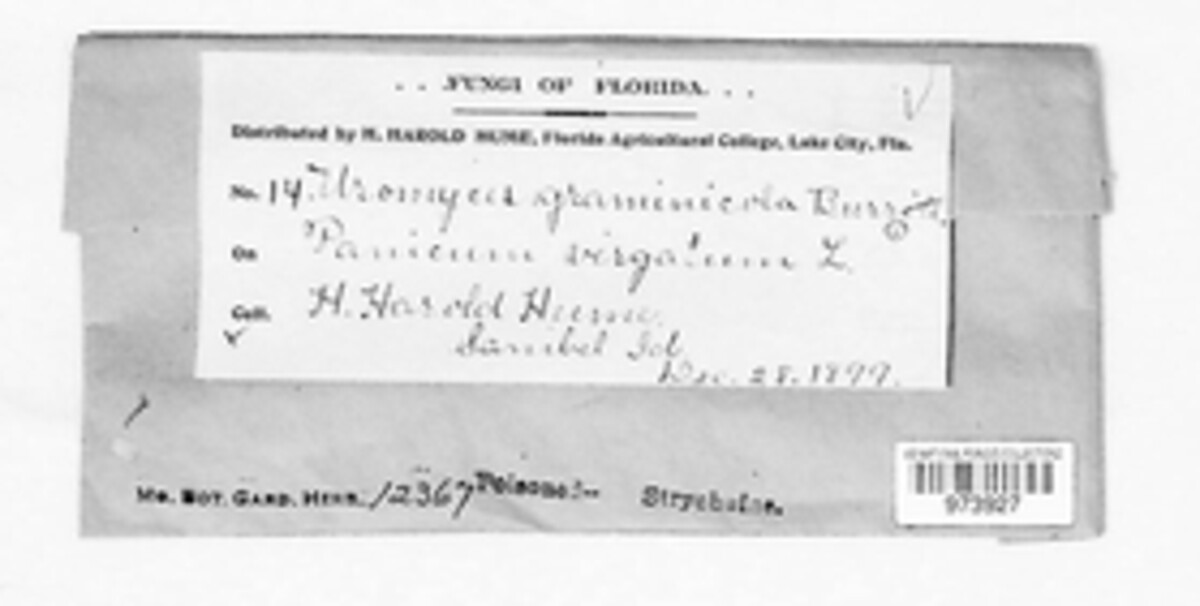 . . FUNGI OF FLORIDA. . .
Distributed by H. HAROLD HUME, Florida Agricultural College, Lake City, Fla.
No. 14. Uromyces graminicola Burrill.
On Panicum virgatum L.
Coll. H. Harold Hume.
Sanibel Isl
Dec. 28. 1899.
Mo. Bot. Gard. Herb. 12367 Poisoned-- Strychnine.
973927